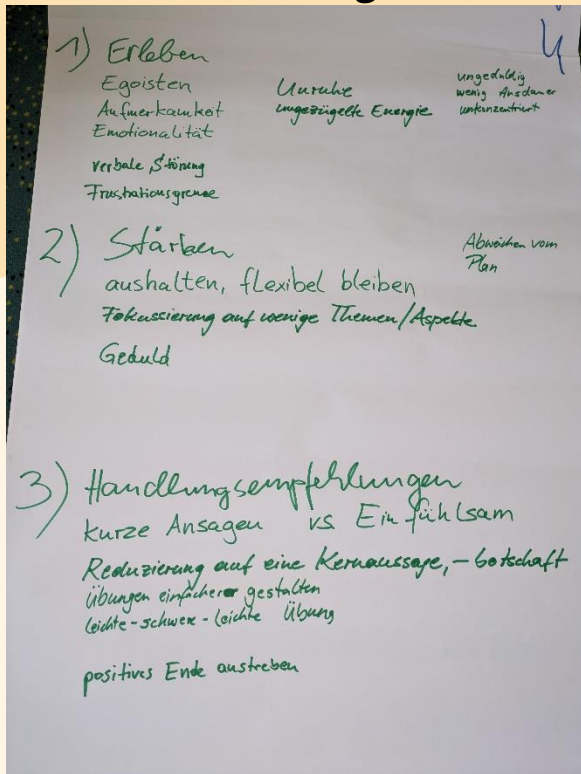 4
1) Erleben
Egoisten
Aufmerksamkeit
Emotionalität
verbale Störung
Frustrationsgrenze
Unruhe
ungezügelte Energie
ungeduldig
wenig Ausdauer
unkonzentriert
2) Stärken
aushalten, flexibel bleiben
Fokussierung auf wenige Themen/Aspekte
Geduld
Abweichen vom
Plan
3) Handlungsempfehlungen
kurze Ansagen vs Einfühlsam
Reduzierung auf eine Kernaussage, -botschaft
Übungen einfacher gestalten
leichte-schwere-leichte Übung
positives Ende anstreben